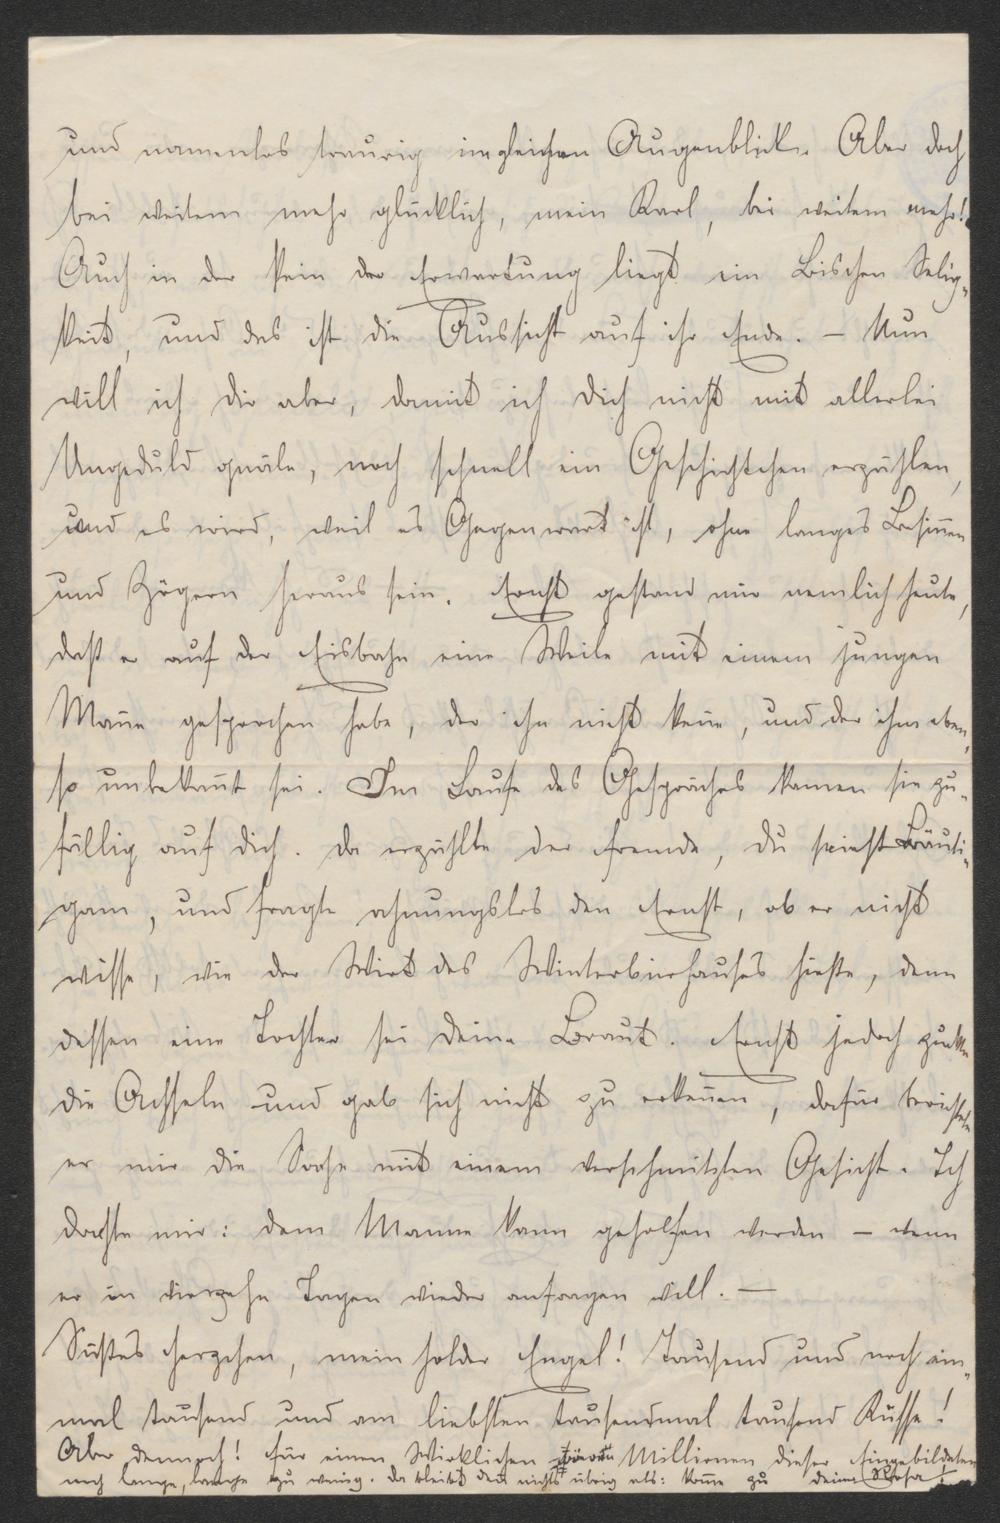 und namenlos traurig im gleichen Augenblick. Aber doch
bei weitem mehr glücklich, mein Karl, bei weitem mehr!
Auch in der Pein der Erwartung liegt ein Bischen Selig-
keit, und das ist die Aussicht auf ihr Ende. – Nun
will ich Dir aber, damit ich Dich nicht mit allerlei
Ungeduld quäle, noch schnell ein Geschichtchen erzählen,
und es wird, weil es Gegenwart ist, ohne langes Besinnen
und Zögern heraus sein. Ernst gestand mir nemlich heute,
daß er auf der Eisbahn eine Weile mit einem jungen
Mañe gesprochen habe, der ihn nicht keñe, und der ihm eben-
so unbekañt sei. Im Laufe des Gespräches kamen sie zu-
fällig auf Dich. Da erzählte der Fremde, Du seiest Bräuti-
gam, und fragte ahnungslos den Ernst, ob er nicht
wisse, wie der Wirt des Winterbierhauses hieße, denn
dessen eine Tochter sei Deine Braut. Ernst jedoch zuckte
die Achseln und gab sich nicht zu erkeñen, dafür berichtete
er mir die Sache mit einem verschmitzten Gesicht. Ich
dachte mir: dem Manne kann geholfen werden – wenn
er in vierzehn Tagen wieder anfragen will. –
Süßes Herzchen, mein holder Engel! Tausend und noch ein-
mal tausend und am liebsten tausendmal tausend Küsse!
Aber dennoch! Für einen Wirklichen wären Millionen dieser Eingebildeten
noch lange, lange zu wenig. Da bleibt dañ nichts übrig als: Kome zu Deiner Rosa!